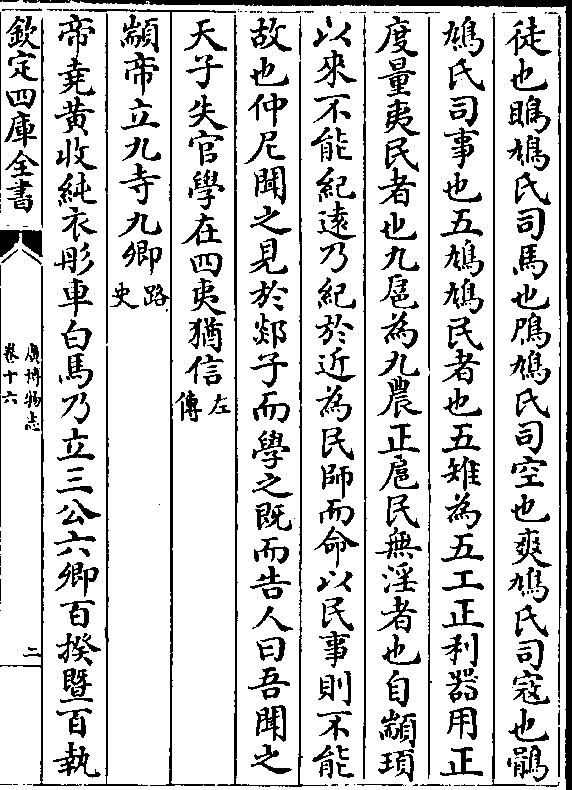 徒也鴡鳩氏司馬也鳲鳩氏司空也爽鳩氏司寇也鶻
鳩氏司事也五鳩鳩民者也五雉為五工正利器用正
度量夷民者也九扈為九農正扈民無淫者也自顓頊
以來不能紀遠乃紀於近為民師而命以民事則不能
故也仲尼聞之見於郯子而學之既而告人曰吾聞之
天子失官學在四夷猶信左傳
顓帝立九寺九卿路史
帝堯黃收純衣彤車白馬乃立三公六卿百揆暨百執
欽定四庫全書
廣博物志
卷十六
二